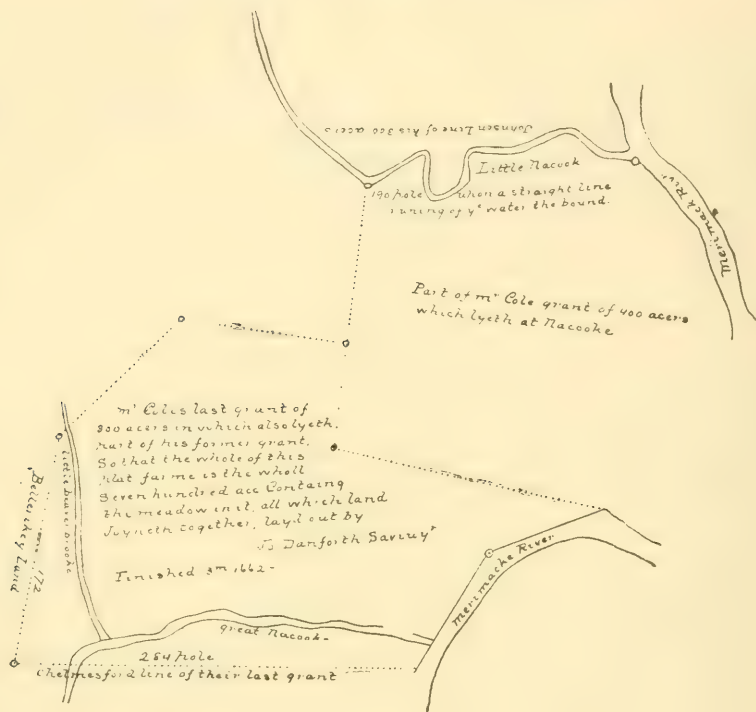 Johnsen Line of his 300 acers
Little Nacook
190 pole upon a straight line
runing of yᵉ water the bound.
Merimack River
Part of mʳ Cole grant of 400 acers
which lyeth at Nacooke
mʳ Coles last grant of
300 acers in which also lyeth.
part of his former grant.
So that the whole of this
plat farme is the wholl
Seven hundred acc Containg
the meadow in it. all which land
Joyneth together, layd out by
Danforth Savuyʳ
Finished 3ᵐ 1662-
Little beaver brooke
172
Bellerikey Land
merimacke River
great Nacook-
284 pole
Chelmesford line of their last grant